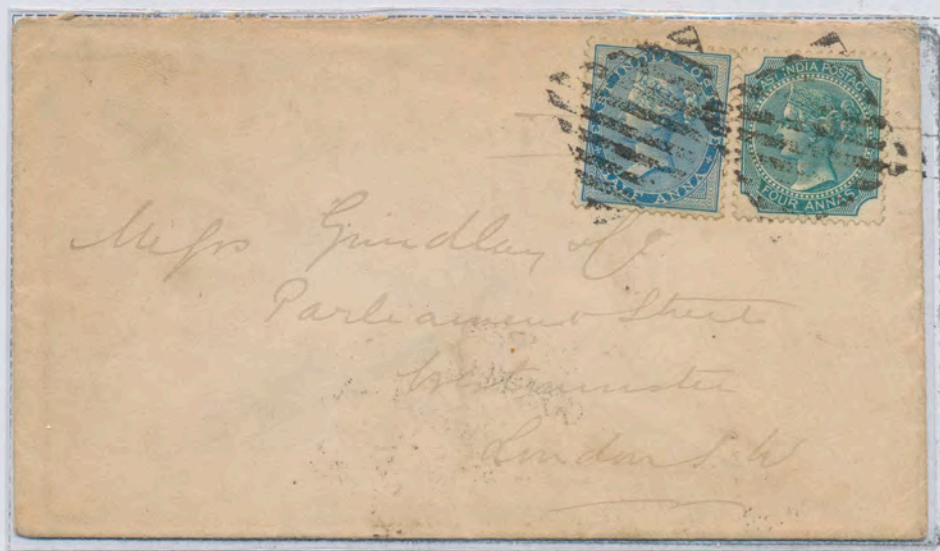 EAST INDIA POSTAGE
HALF ANNA
EAST INDIA POSTAGE
FOUR ANNAS
Messrs Grindlay & Co.
Parliament Street
Westminster
London S.W